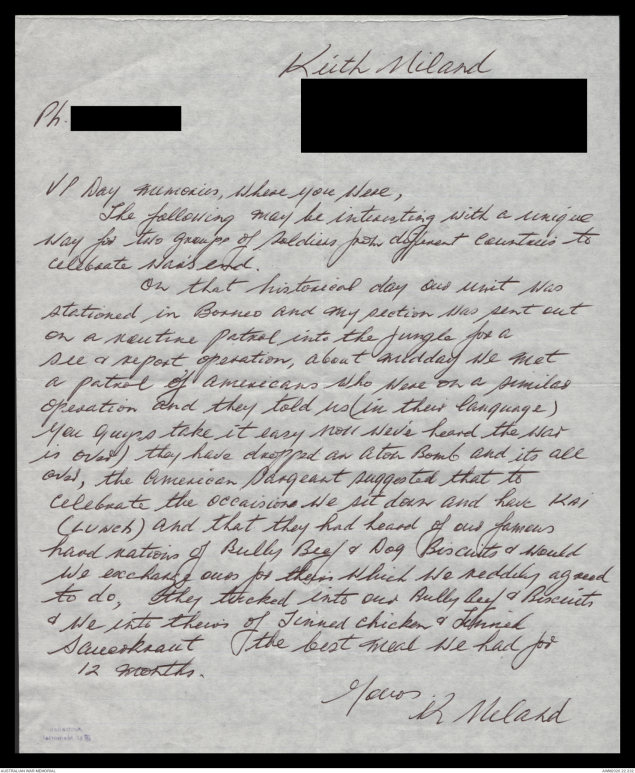 Keith Niland
Ph.
VP Day memories, where you were,
The following may be interesting with a unique
way for two groups of soldiers from different countries to
celebrate war's end.
On that historical day our unit was
stationed in Borneo and my section was sent out
on a routine patrol into the jungle for a
see & report operation, about midday we met
a patrol of Americans who were on a similar
operation and they told us (in their language)
you guys take it easy now we've heard the war
is over) they have dropped an Atom Bomb and its all
over, the American Sargeant suggested that to
celebrate the occaision we sit down and have Kai
(LUNCH) and that they had heard of our famous
hard rations of Bully Beef & Dog Biscuits & would
we exchange ours for theirs which we reddily agreed
to do, they tucked into our Bully beef & Biscuits
& we into theirs of Tinned chicken & Tinned
Sauerkraut the best meal we had for
12 months.
Yours
K Niland
AUSTRALIAN WAR MEMORIAL